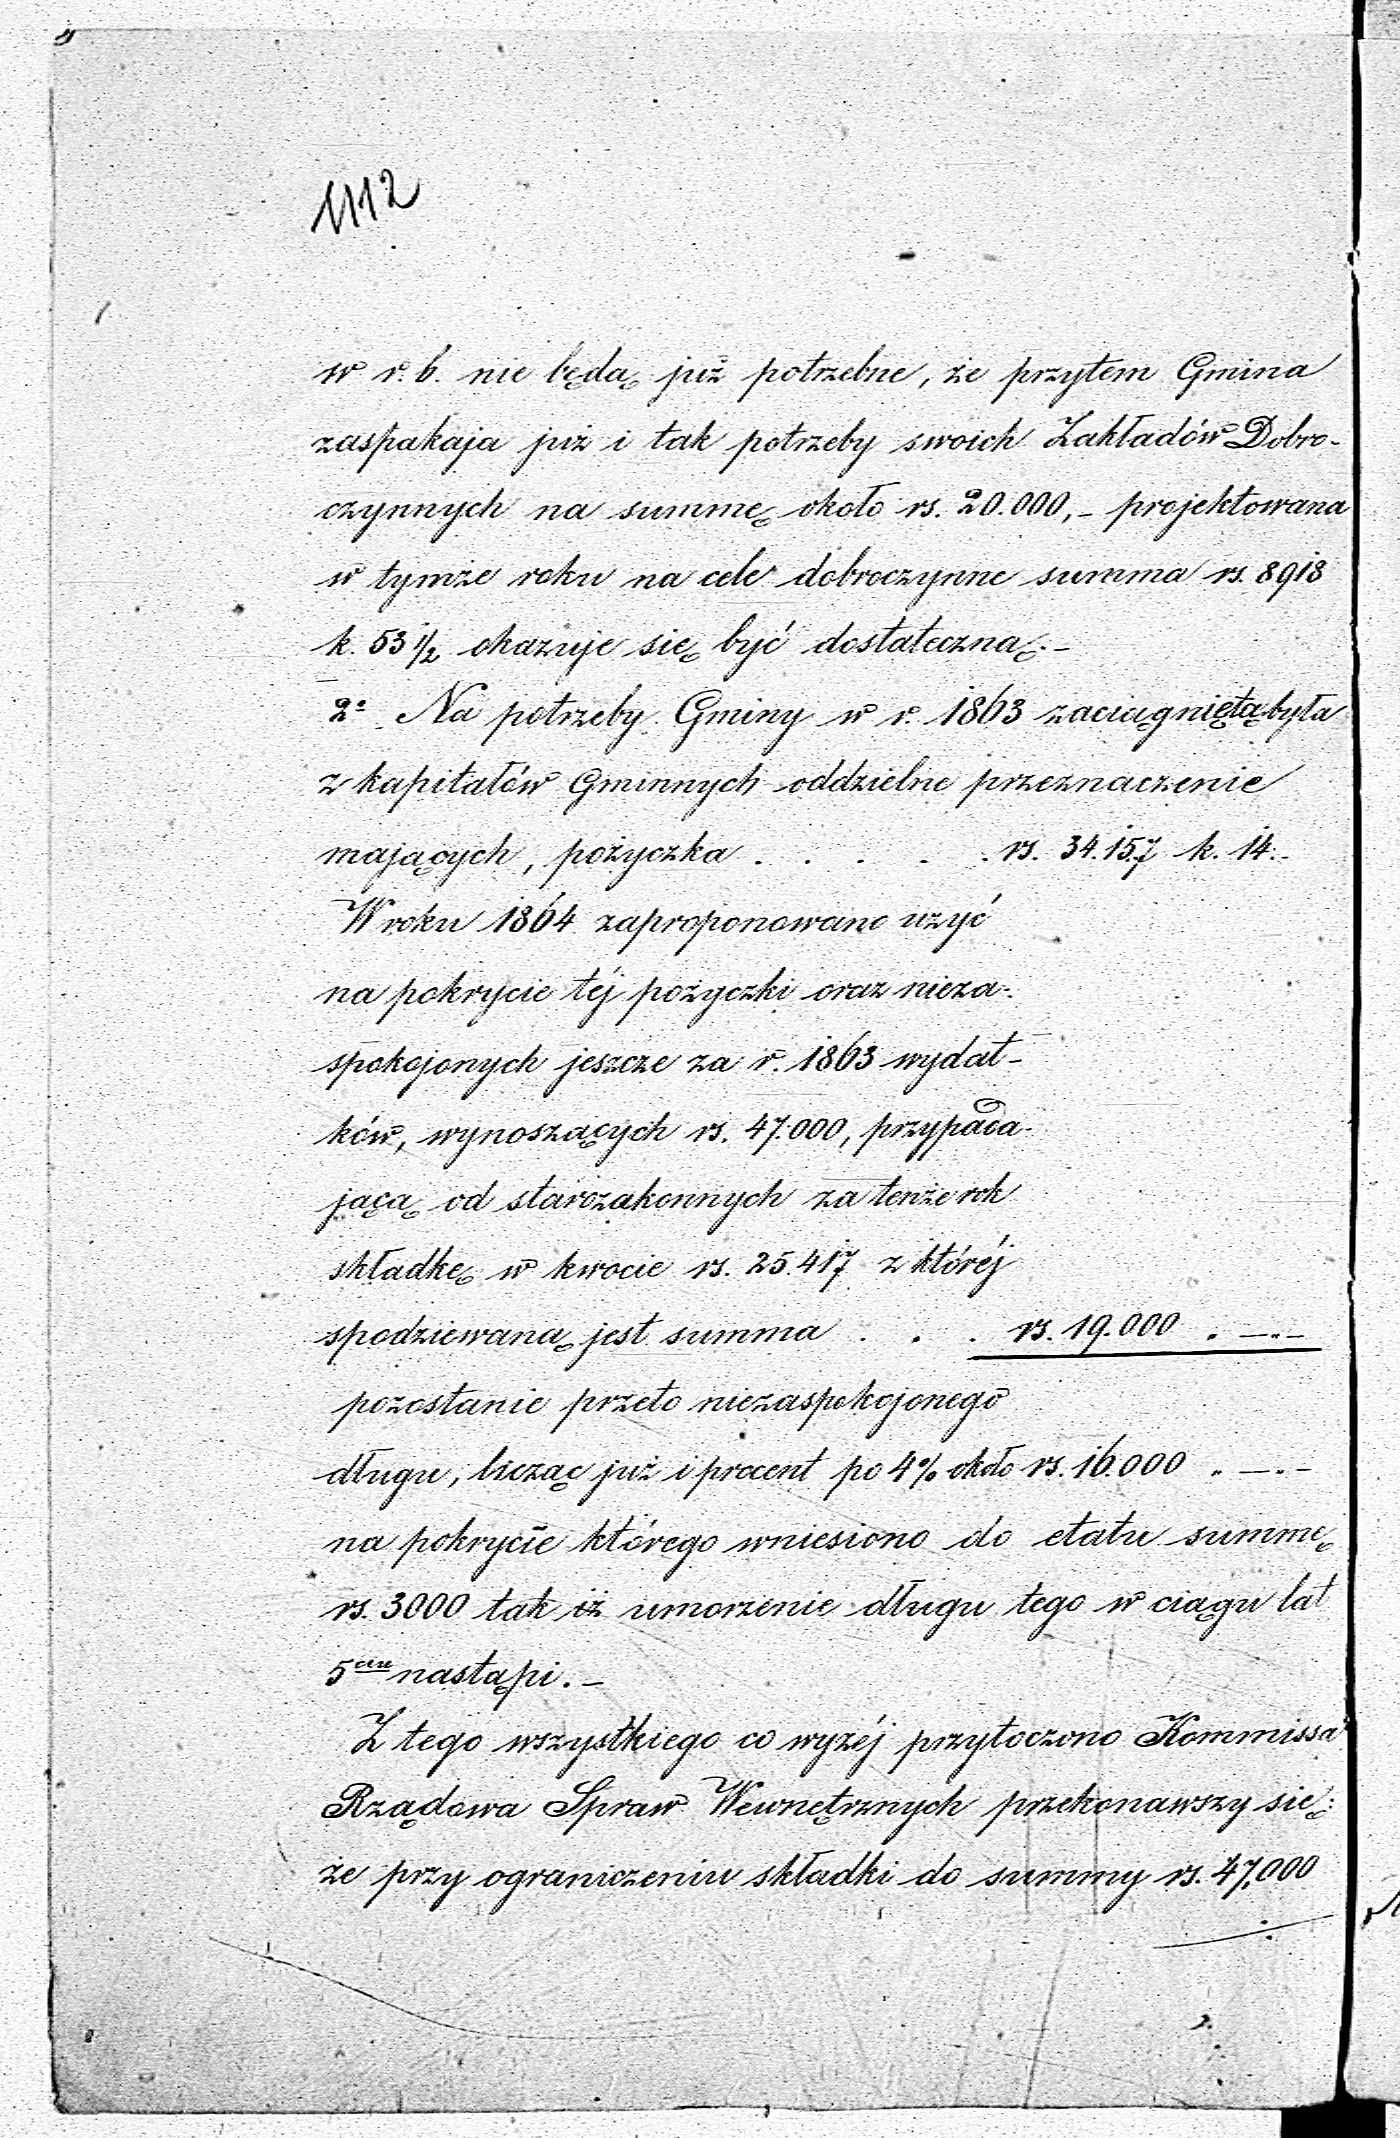 1112
w r. b. nie będą już potrzebne, że przytem Gmina
zaspakaja już i tak potrzeby swoich Zakładów Dobro-
czynnych na summę około rs. 20.000,- projektowana
w tymże roku na cele dobroczynne summa rs. 8918
k. 53 1/2 okazuje się być dostateczną.-
2° Na potrzeby Gminy w r. 1863 zaciągniętą była
z kapitałów Gminnych oddzielne przeznaczenie
mających, pożyczka . . . . . rs. 34.157 k. 14.-
W roku 1864 zaproponowano użyć
na pokrycie téj pożyczki oraz nieza-
spokojonych jeszcze za r. 1863 wydat-
ków, wynoszących rs. 47.000, przypada-
jącą od starozakonnych za tenże rok
składkę w kwocie rs. 25.417 z któréj
spodziewaną jest summa . . . rs. 19.000 . —.—
pozostanie przeto niezaspokojonego
długu, licząc już i procent po 4% około rs. 16.000 . —.—
na pokrycie którego wniesiono do etatu summę
rs. 3000 tak iż umorzenie długu tego w ciągu lat
5ciu nastąpi.-
Z tego wszystkiego co wyżéj przytoczono Kommissa
Rządowa Spraw Wewnętrznych przekonawszy się:
że przy ograniczeniu składki do summy rs. 47,000